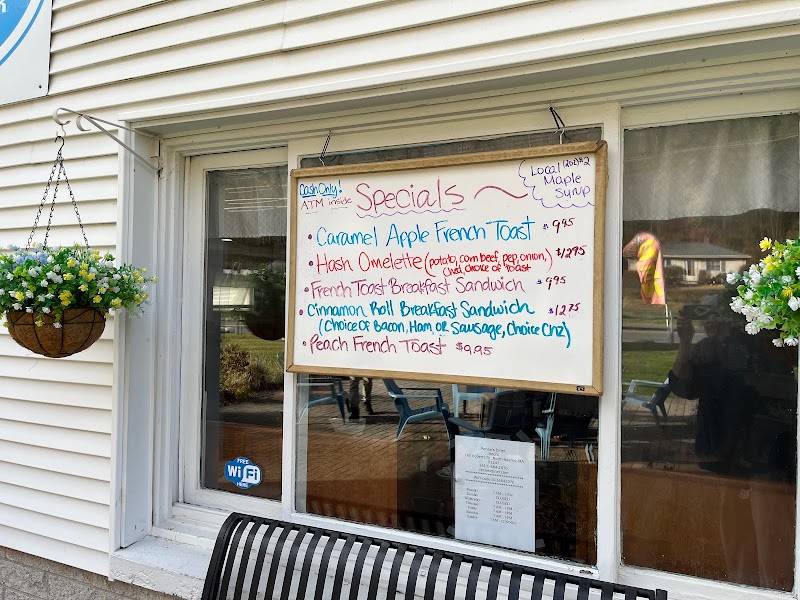 Cash Only!
ATM inside
Specials
Local (202) #2
Maple
Syrup
• Caramel Apple French Toast $9.95
• Hash Omelette (potato, corn beef, pep, onion,) $12.95
Chd, choice of toast
• French Toast Breakfast Sandwich $9.95
• Cinnamon Roll Breakfast Sandwich $12.75
(Choice Of Bacon, Ham, or Sausage, Choice Chz)
• Peach French Toast $9.95
FREE
WiFi
HERE